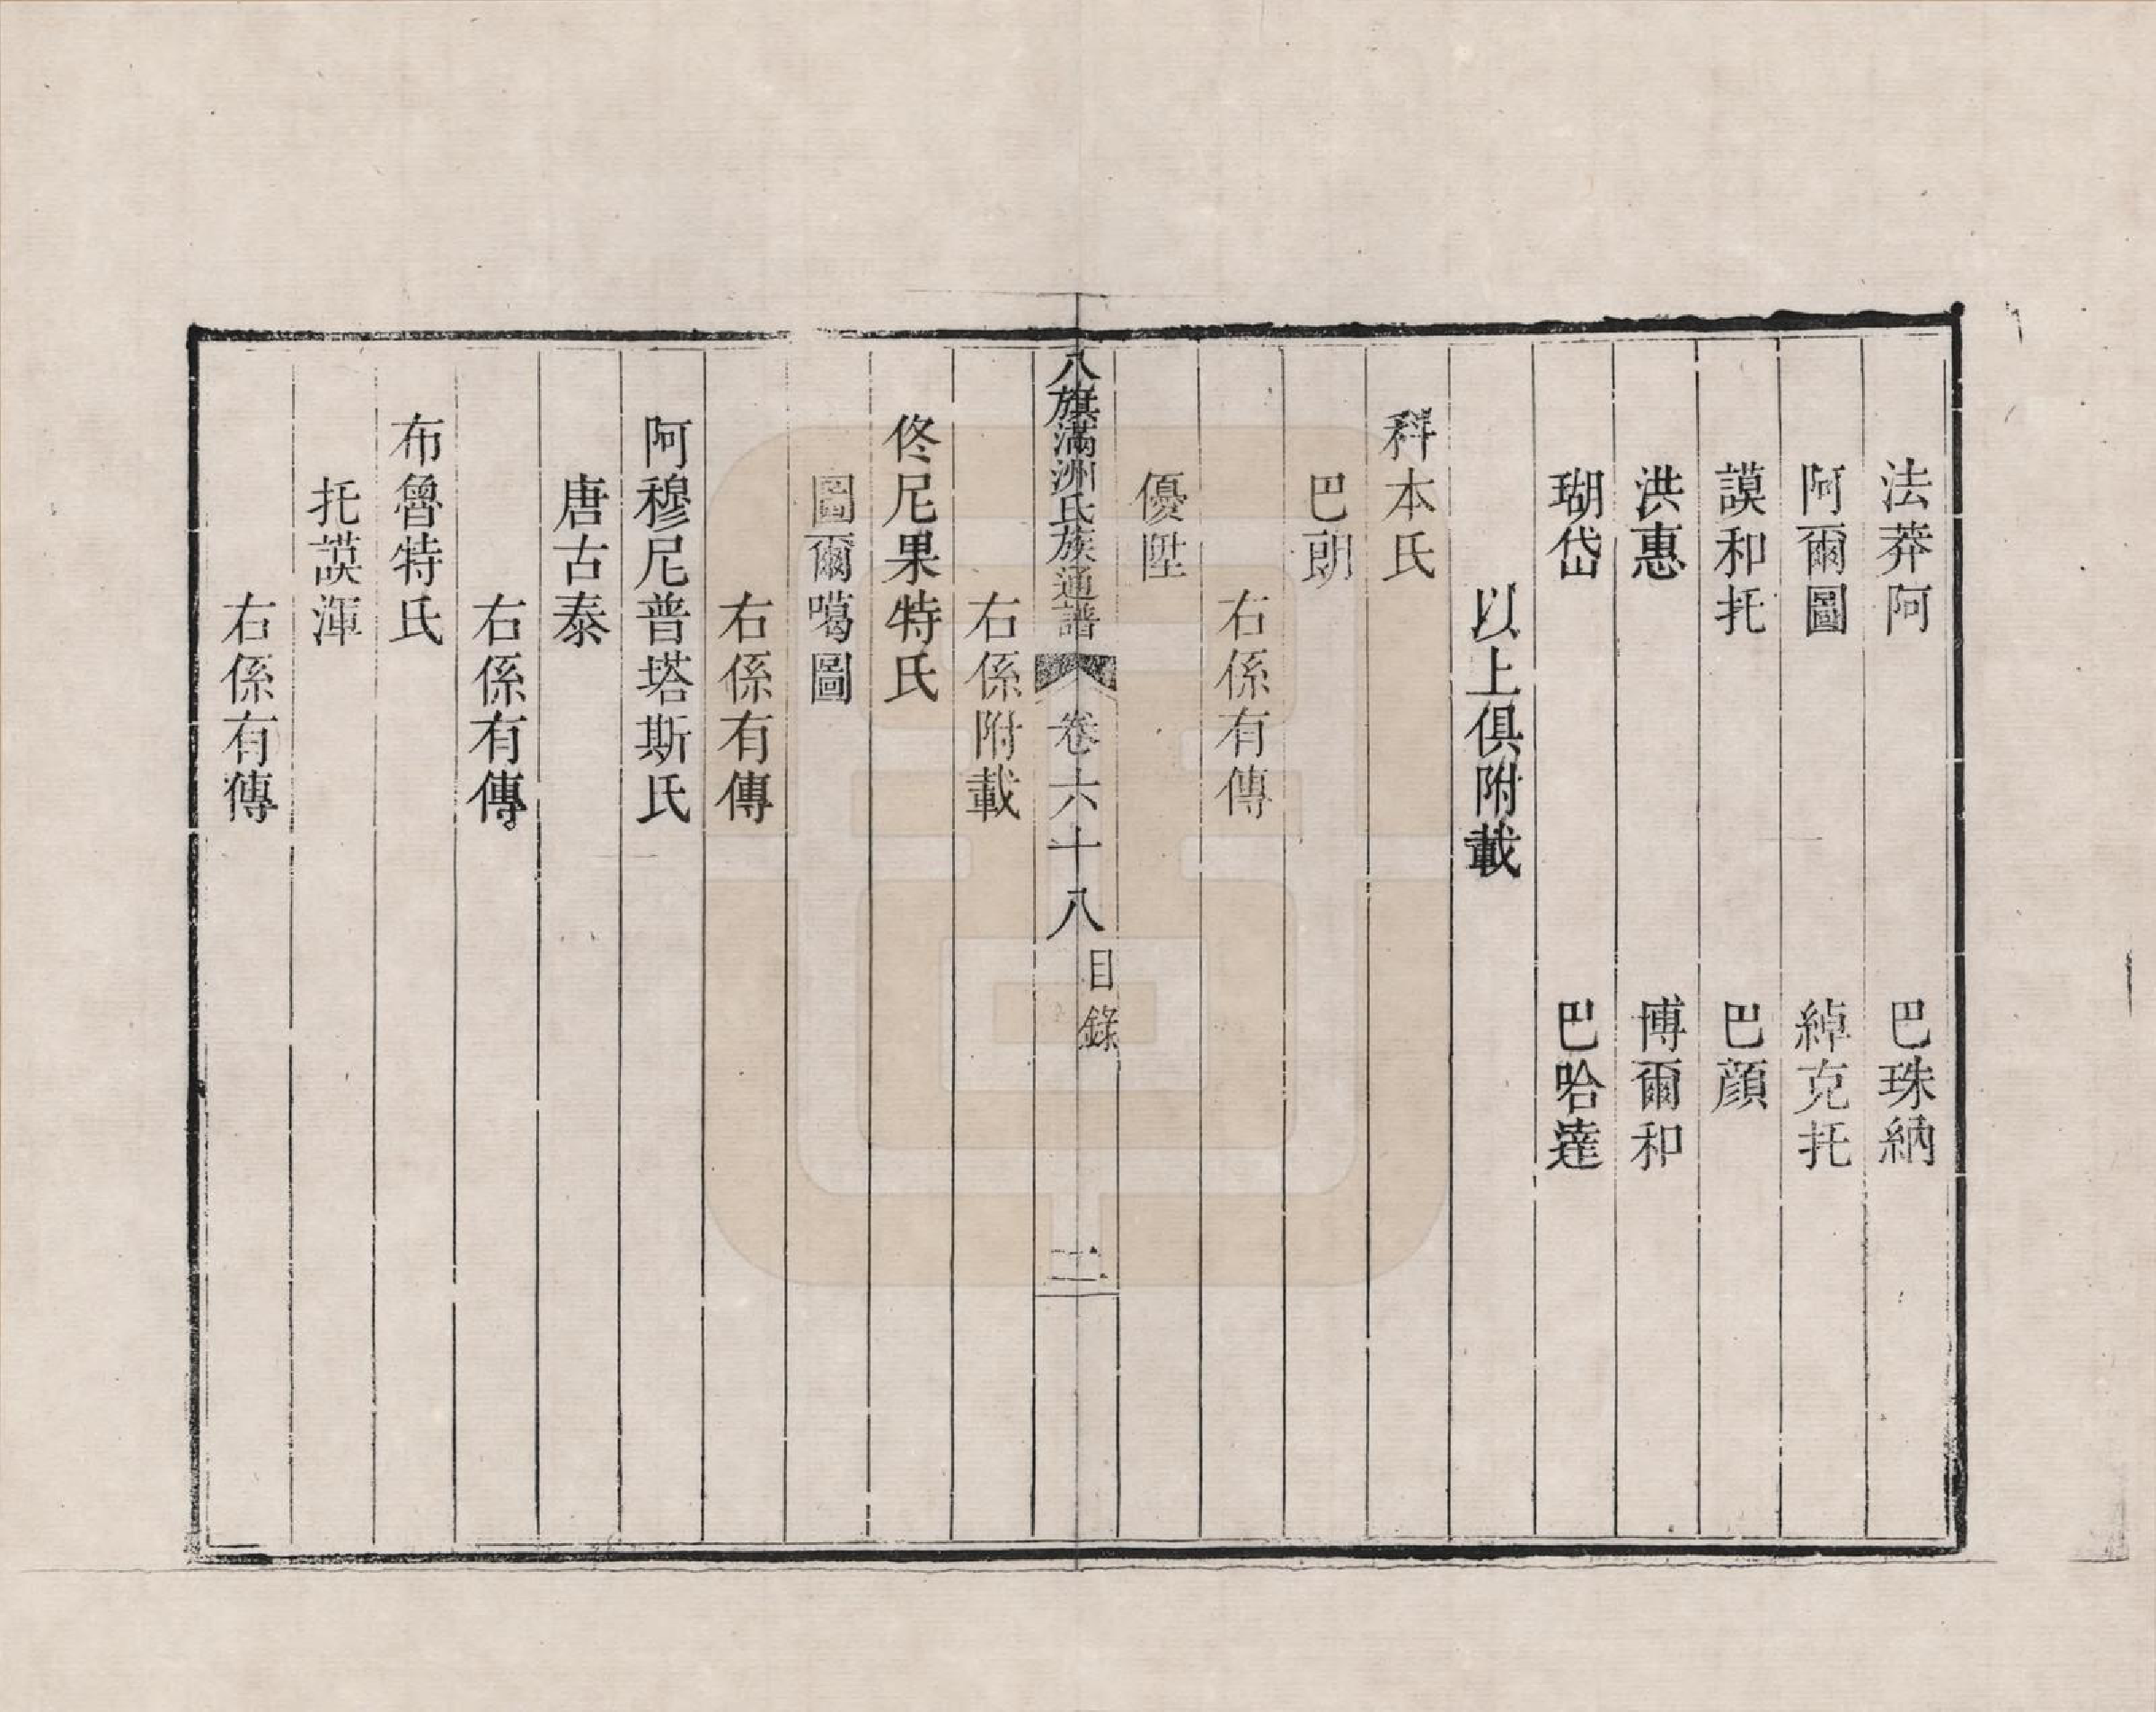 法莽阿　巴珠納
阿爾圖　綽克托
謨和托　巴顔
洪惠　博爾和
瑚岱　巴哈達
以上俱附載
科本氏
巴朗
右係有傳
優陞
八旗滿洲氏族通譜　卷六十八　目錄　二
右係附載
佟尼果特氏
圖爾噶圖
右係有傳
阿穆尼普塔斯氏
唐古泰
右係有傳
布魯特氏
托謨渾
右係有傳